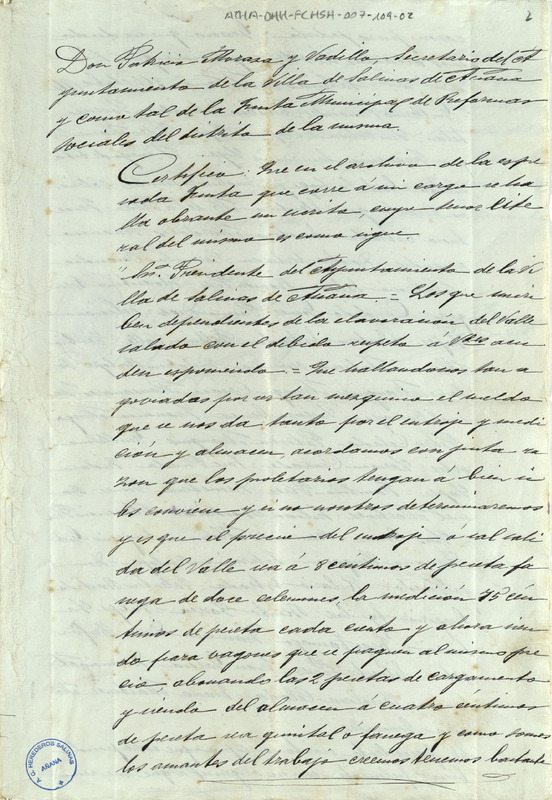 ATHA-DHH-FCHSH-007-109-02
2
Don Patricio Moraza y Vadillo, Secretario del A
yuntamiento de la Villa de Salinas de Añana
y como tal de la Junta Municipal de Reformas
Sociales del distrito de la misma.
Certifico: Que en el archivo de la expre
sada Junta que corre á mi cargo se ha
lla obrante un escrito, cuyo tenor lite
ral del mismo es como sigue.
"Sr. Presidente del Ayuntamiento de la Vi
lla de Salinas de Añana = Los que suscri
ben dependientes de la elavoración del Valle
salado con el debido respeto á Vdes acu
den esponiendo = Que hallandonos tan a
goviadas por ser tan mezquino el sueldo
que se nos da tanto por el entroje y medi
ción y almacen, acordamos con justa ra
zon que los proletarios tengan á bien si
les conviene y si no nosotros determinaremos
y es que el precio del entroje ó sal sali
da del Valle sea á 8 céntimos de peseta fa
nega de doce celemines, la medición 75 cén
timos de peseta cada ciento y ahora sien
do para vagones que se paguen al mismo pre
cio, abonando las 2 pesetas de cargamento
y siendo del almacen a cuatro céntimos
de peseta sea quintal ó fanega y como somos
los amantes del trabajo creemos tenemos bastante
A.C. HEREDEROS SALINAS
AÑANA